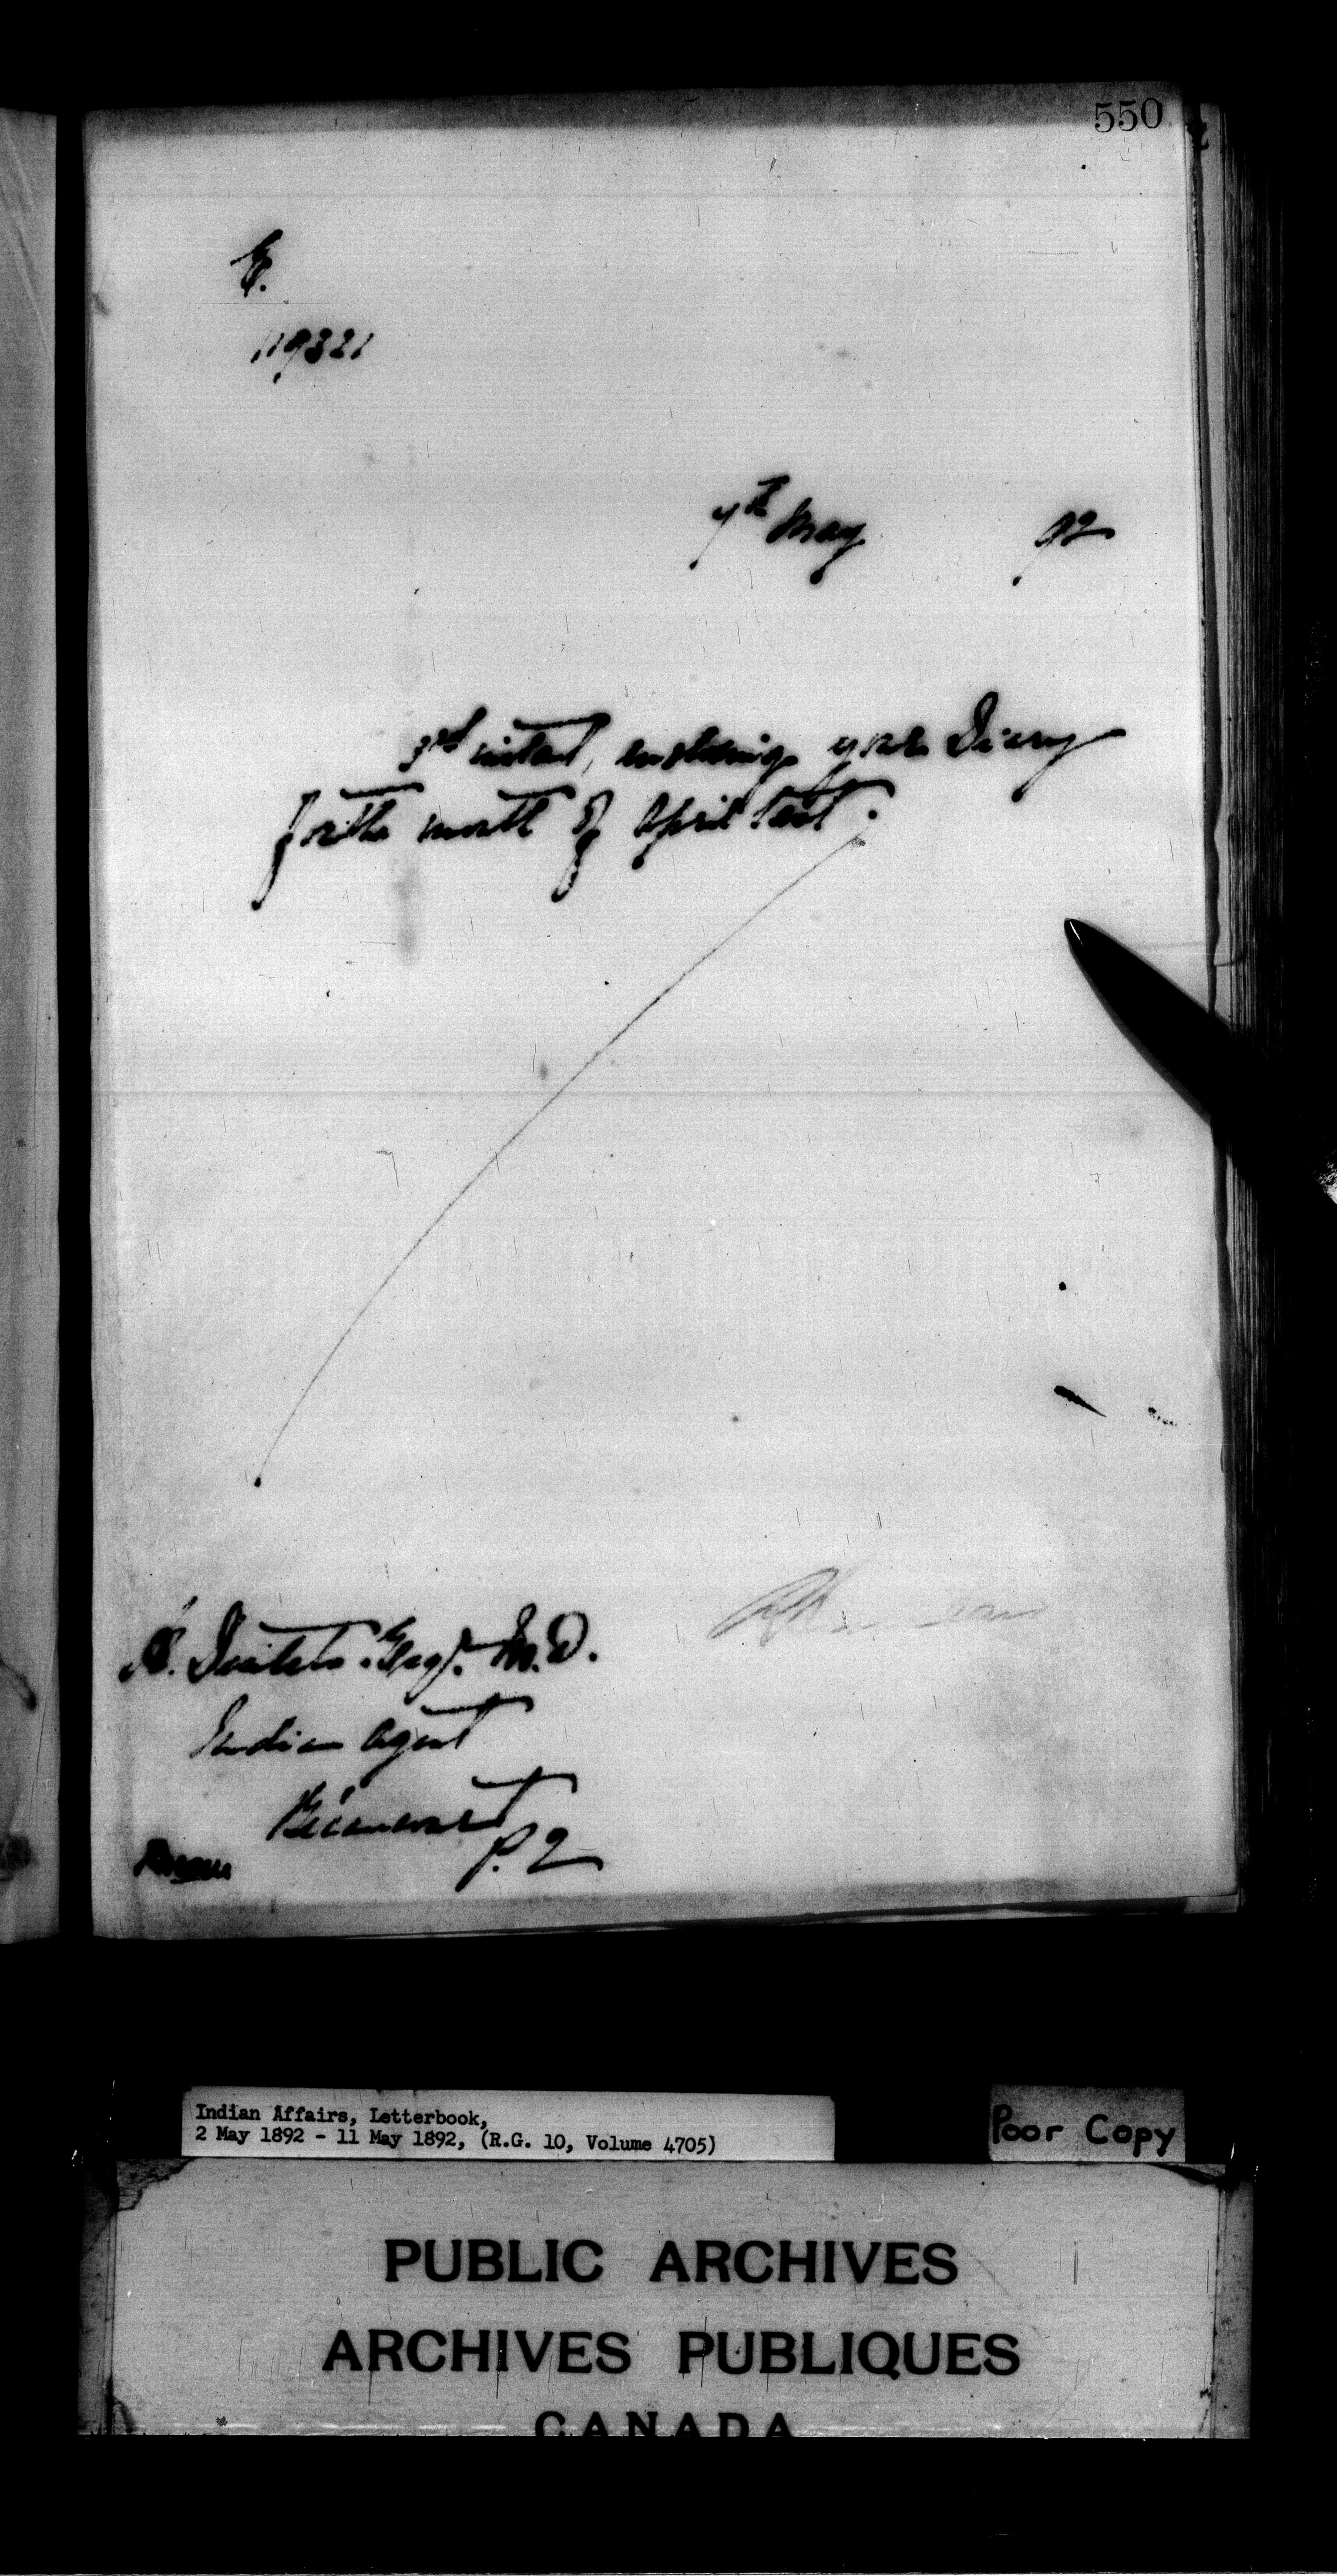 550
E.
119321
7th May 92
3rd instant, enclosing your Diary
for the month of April last.
Desilets. Esq. M.D.
Indian Agent
Bécancour
P. Q
Indian Affairs, Letterbook,
2 May 1892 - 11 May 1892, (R.G. 10, Volume 4705)
Poor Copy
PUBLIC ARCHIVES
ARCHIVES PUBLIQUES
CANADA